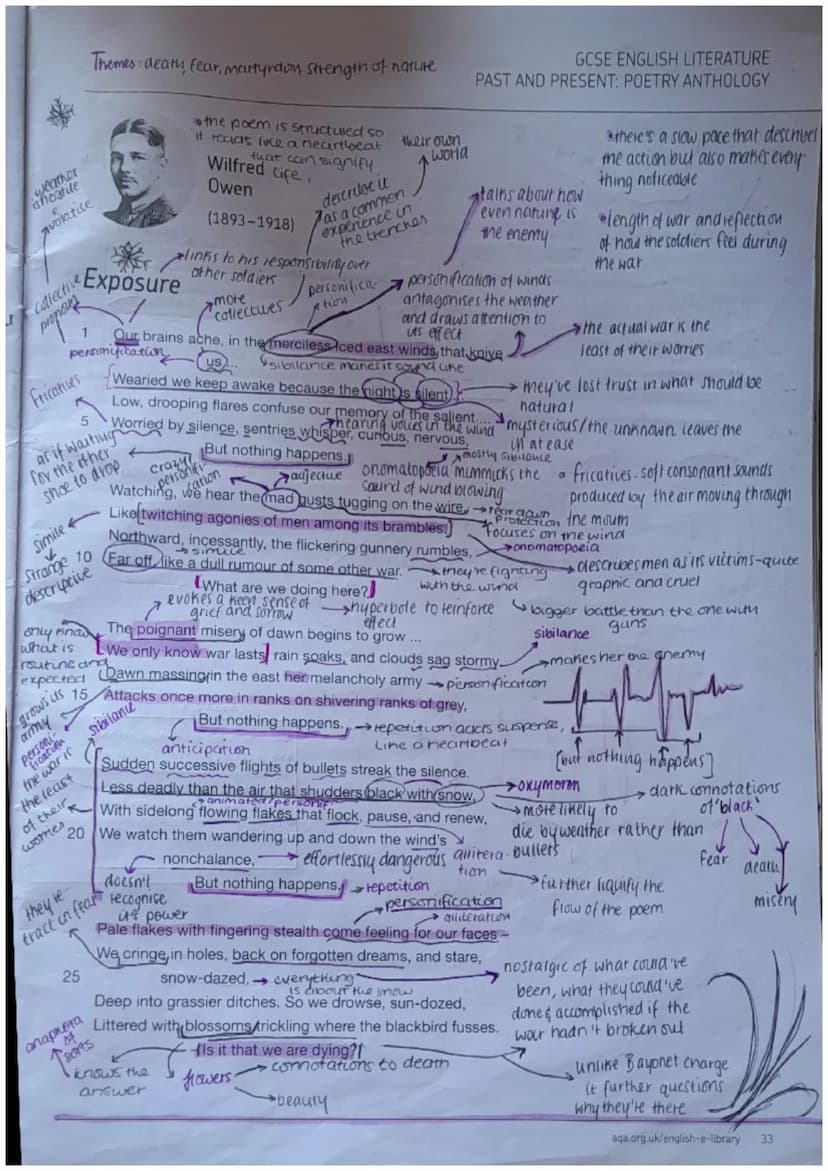 Themes: death, fear, martyrdom, strength of nature
GCSE ENGLISH LITERATURE
PAST AND PRESENT: POETRY ANTHOLOGY
• the poem is structured so
it reads like a heartbeat
that can signify
life.
Wilfred
Owen
(1893–1918)
their own
world
describe it
as a common
experience in
the trenches
talks about how
even nature is
the enemy
• there's a slow pace that describes
the action but also makes every-
thing noticeable
• length of war and reflection
of how the soldiers feel during
the war
weather
is hostile
&
volatile
links to his responsibility over
other soldiers
Exposure
collective
pronoun
more
collectives
personifica-
tion
personification of winds
antagonises the weather
and draws attention to
its effect
the actual war is the
least of their worries
1 Our brains ache, in the merciless iced east winds that knive
personification
us ...
sibilance makes it sound like
Fricatives
Wearied we keep awake because the night is silent ...
they've lost trust in what should be
natural
Low, drooping flares confuse our memory of the salient ...
hearing voices in the wind
mysterious/the unknown leaves them
in at ease
5 Worried by silence, sentries whisper, curious, nervous,
mostly sibilance
But nothing happens.
as if waiting
for the other
shoe to drop
crazy
personifi-
cation
adjective
onomatopoeia mimmicks the
sound of wind blowing
• fricatives - soft consonant sounds
produced by the air moving through
the mouth
Watching, we hear the mad gusts tugging on the wire,
tear down
protection
Like twitching agonies of men among its brambles.
focuses on the wind
simile
strange
descriptive
Northward, incessantly, the flickering gunnery rumbles,
onomatopoeia
simile
10 Far off, like a dull rumour of some other war.
they're fighting
with the wind
describes men as its victims - quite
graphic and cruel
What are we doing here?
evokes a keen sense of
grief and sorrow
hyperbole to reinforce
effect
bigger battle than the one with
guns
The poignant misery of dawn begins to grow ...
sibilance
only know
what is
routine and
expected
We only know war lasts, rain soaks, and clouds sag stormy.
makes her the enemy
Dawn massing in the east her melancholy army
personification
15 Attacks once more in ranks on shivering ranks of grey,
grows its
army
personi-
fication
sibilance
But nothing happens.
repetition adds suspense,
like a heartbeat
[but nothing happens]
anticipation
the war is
the least
of their
worries
Sudden successive flights of bullets streak the silence.
Less deadly than the air that shudders black with snow,
oxymoron
dark connotations
of 'black'
fear
death
misery
animated/personif
more likely to
die by weather rather than
bullets
With sidelong flowing flakes that flock, pause, and renew,
20 We watch them wandering up and down the wind's
nonchalance,
effortlessly dangerous
allitera-
tion
further liquify the
flow of the poem
doesn't
recognise
its power
But nothing happens.
repetition
they re-
tract in fear
personification
alliteration
Pale flakes with fingering stealth come feeling for our faces –
We cringe in holes, back on forgotten dreams, and stare,
25 snow-dazed,
everything
is about the snow
nostalgic of what could've
been, what they could've
done & accomplished if the
war hadn't broken out
Deep into grassier ditches. So we drowse, sun-dozed,
Littered with blossoms trickling where the blackbird fusses.
Is it that we are dying?
anaphora
of
knows the
answer
flowers
connotations to death
beauty
unlike Bayonet charge
it further questions
why they're there
aqa.org.uk/english-e-library 33